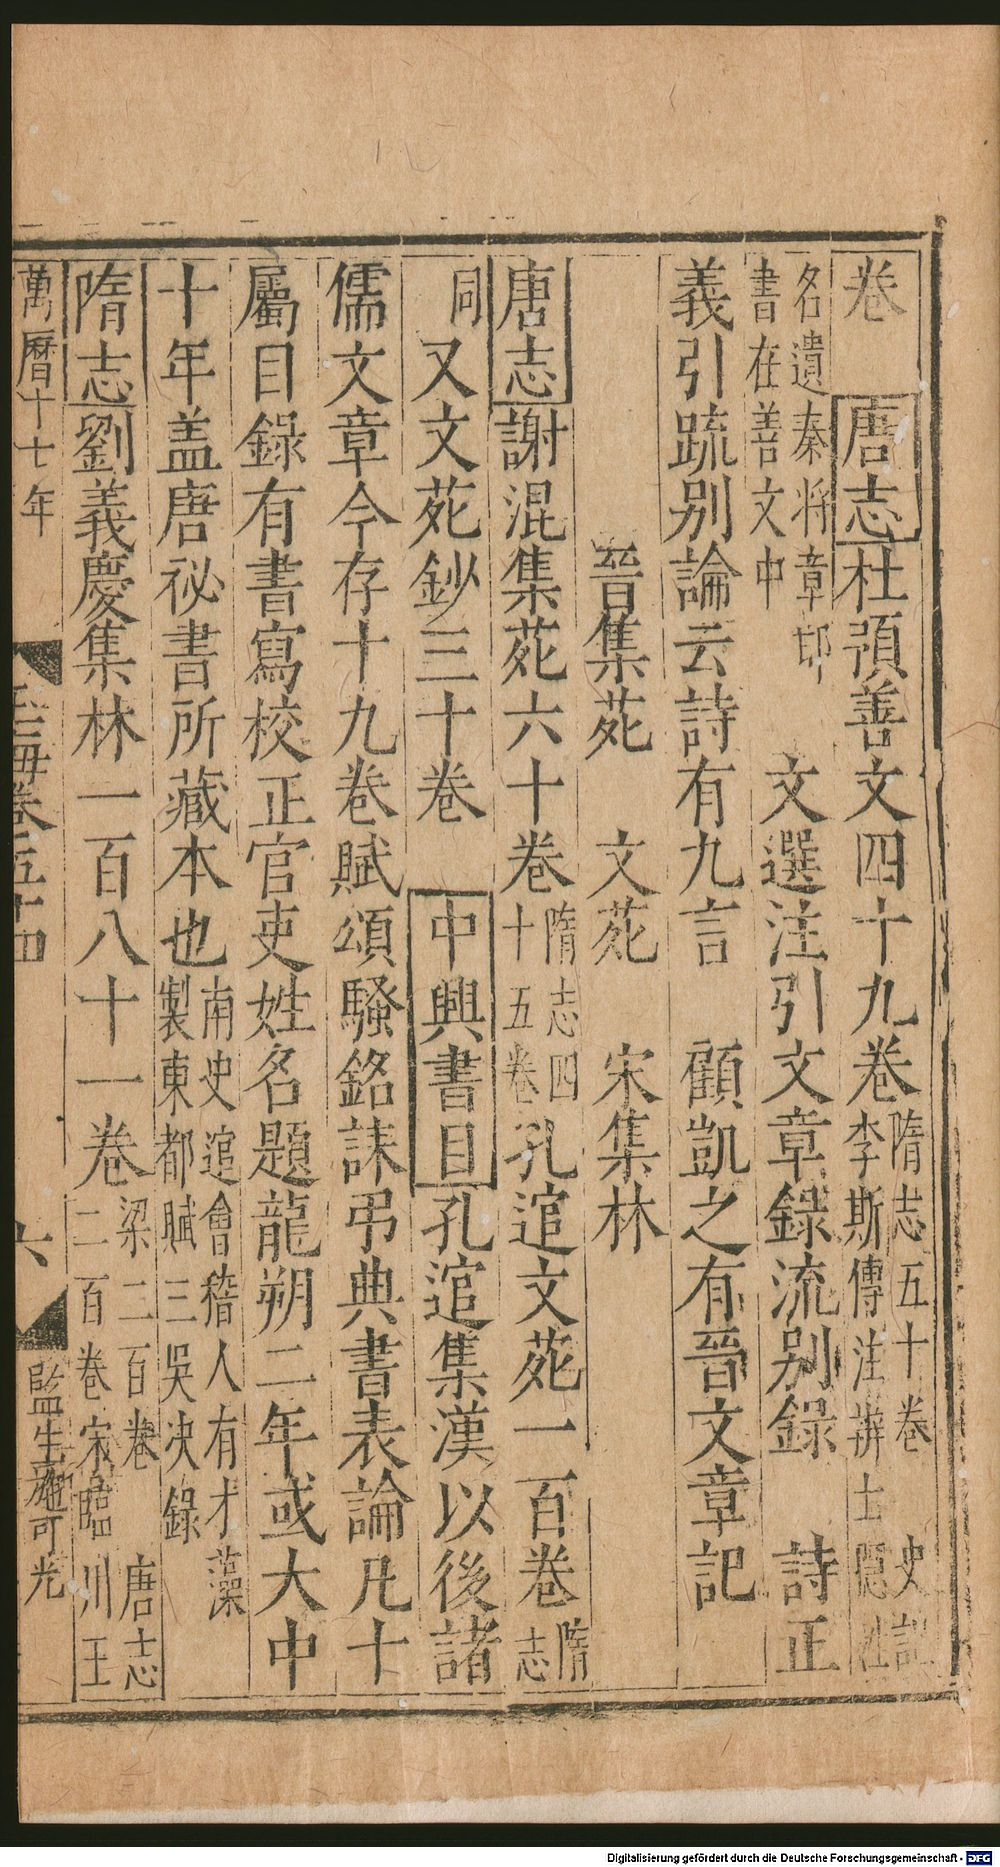 卷　唐志杜預善文四十九卷隋志五十卷　史記李斯傳注辨士隱姓
名遺秦将章邯書在善文中　文選注引文章録流别録　詩正
義引䟽别論云詩有九言　顧凱之有晉文章記
晉集苑　文苑　宋集林
唐志謝混集苑六十卷隋志四十五卷孔逭文苑一百卷隋志
同又文苑鈔三十卷　中興書目孔逭集漢以後諸
儒文章今存十九卷賦頌騷銘誄弔典書表論凡十
屬目錄有書寫校正官吏姓名題龍朔二年或大中
十年盖唐祕書所藏本也南史逭會稽人有才藻製東都賦三吳决錄
隋志劉義慶集林一百八十一卷梁二百卷　唐志二百卷宋臨川王
萬曆十七年　玉海卷五十四　六　監生　可光
Digitalisierung gefördert durch die Deutsche Forschungsgemeinschaft - DFG